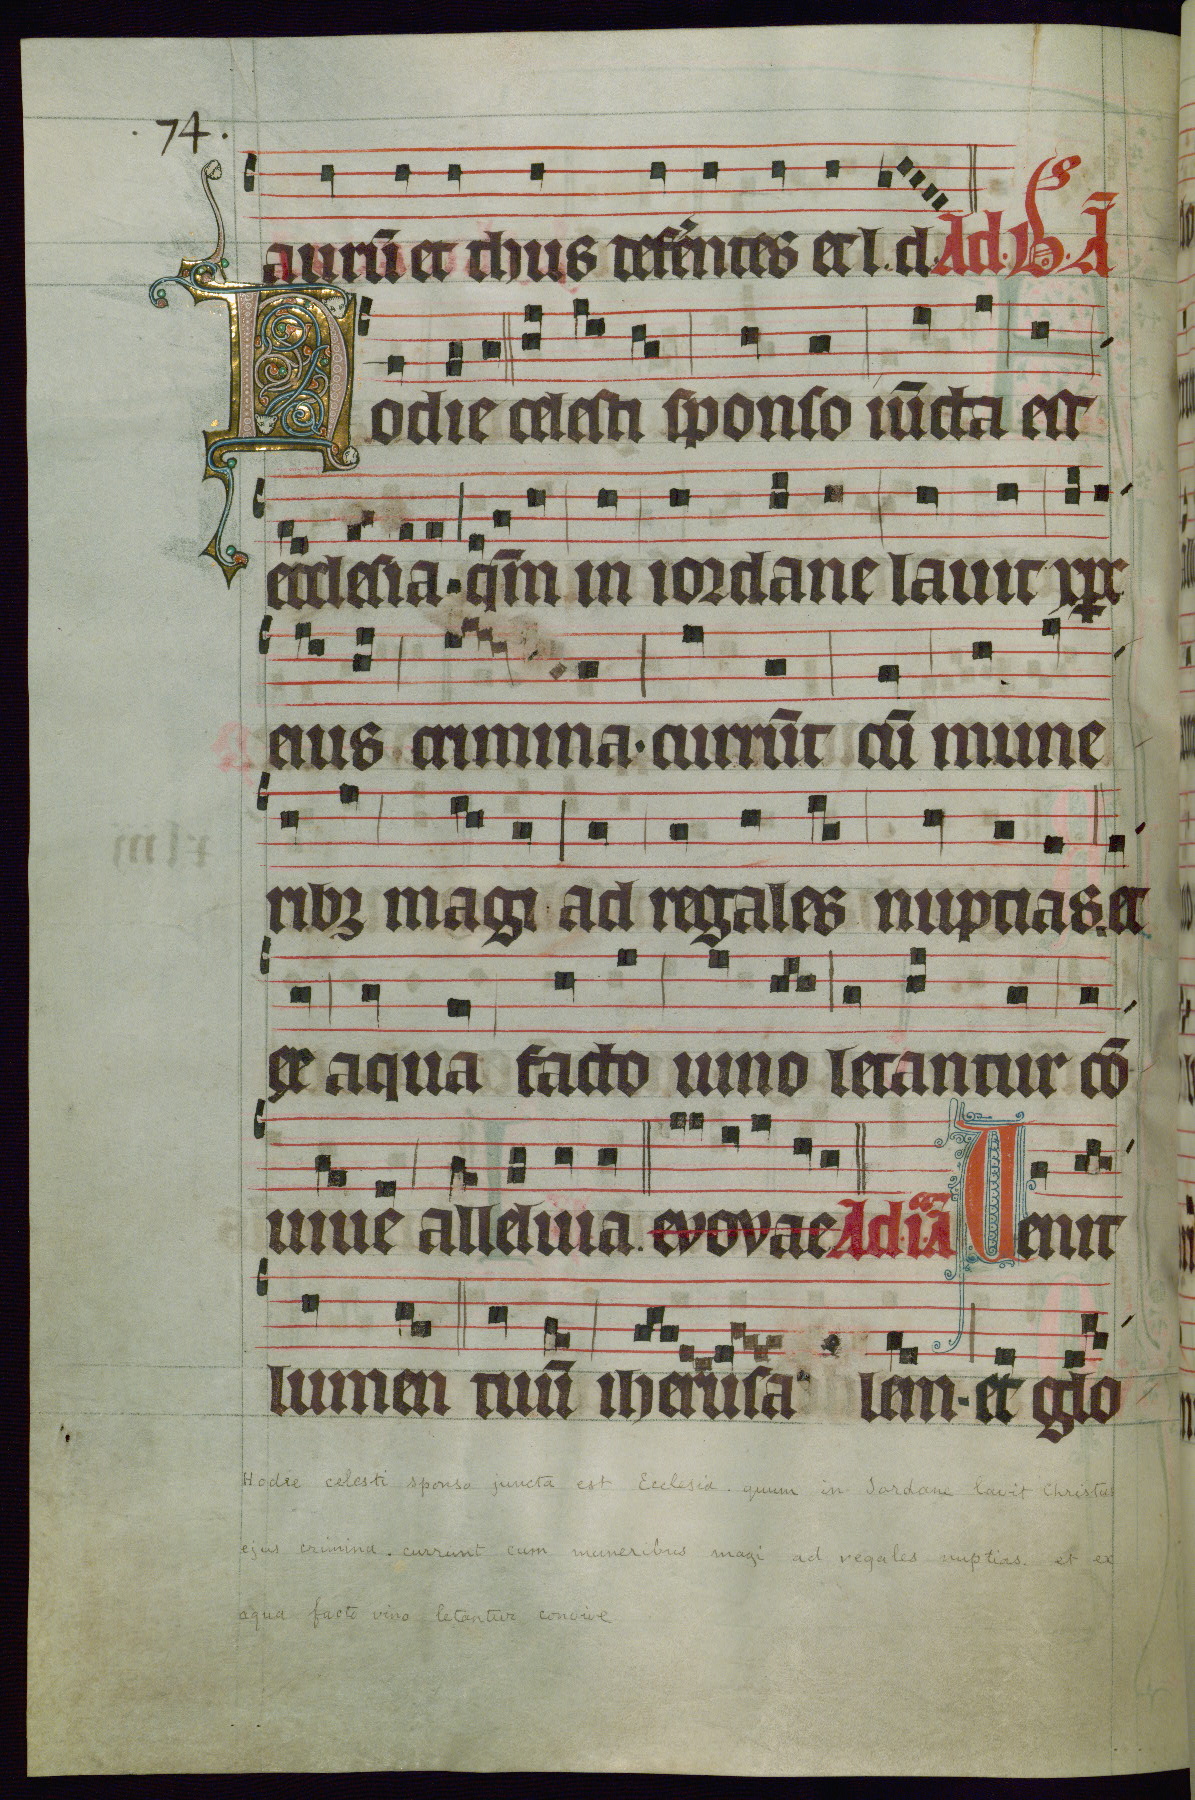 ·74·
aurū et thus defēntes et l. d. Ad. B. Ā
Hodie celesti sponso iūcta est
ecclesia · qm̄ in iordane lauit xpc
eius crimina · currūt cū mune
ribꝫ magi ad regales nuptias. et
ex aqua facto uino letantur cō
uiue alleluia. evovae Ad. i. ā Uenit
lumen tuū iherusa lem · et glo
Hodie celesti sponso juncta est Ecclesia. quum in Jordane lavit Christus
ejus crimina. currunt cum muneribus magi ad regales nuptias. et ex
aqua facto vino letantur convive